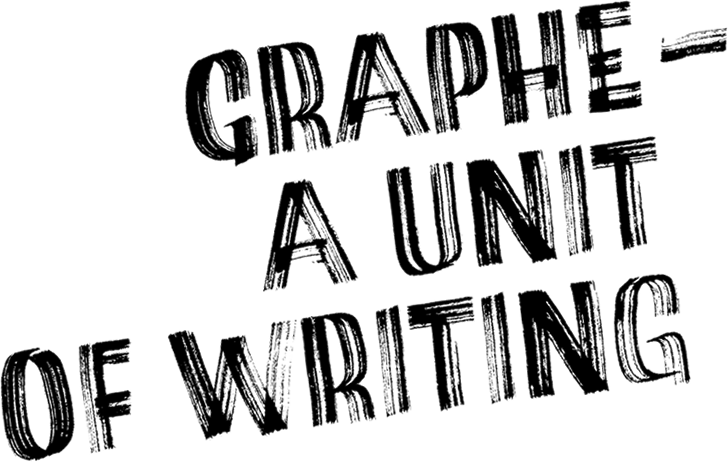 GRAPHE —
A UNIT
OF WRITING